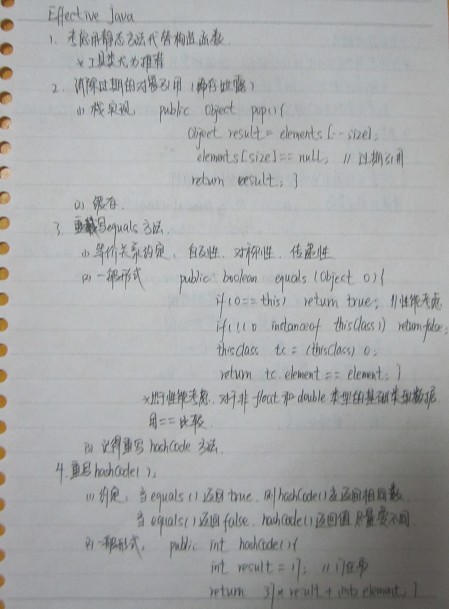 Effective Java
1. 考虑用静态方法代替构造函数.
* 工具类尤为推荐
2. 消除过期的对象引用 (内存泄露)
(1) 栈实现 public Object pop(){
Object result = elements[--size];
elements[size] == null; // 过期引用
return result; }
(2) 缓存.
3. 重写equals 方法
(1) 等价关系约定, 自反性. 对称性. 传递性
(2) 一般形式 public boolean equals (Object o){
if (o == this) return true; // 性能考虑
if (!(o instanceof thisClass)) return false;
thisClass tc = (thisClass) o;
return tc.element == element; }
* 出于性能考虑. 对于非 float 和 double 类型的基础类型数据
用 == 比较.
(3) 记得重写 hashCode 方法.
4. 重写 hashCode();
(1) 约定, 当 equals() 返回 true. 则 hashCode() 应返回相同数.
当 equals() 返回 false. hashCode() 返回值 尽量要不同.
(2) 一般形式, public int hashCode(){
int result = 17; // 17
return 37 * result + (int) element; }